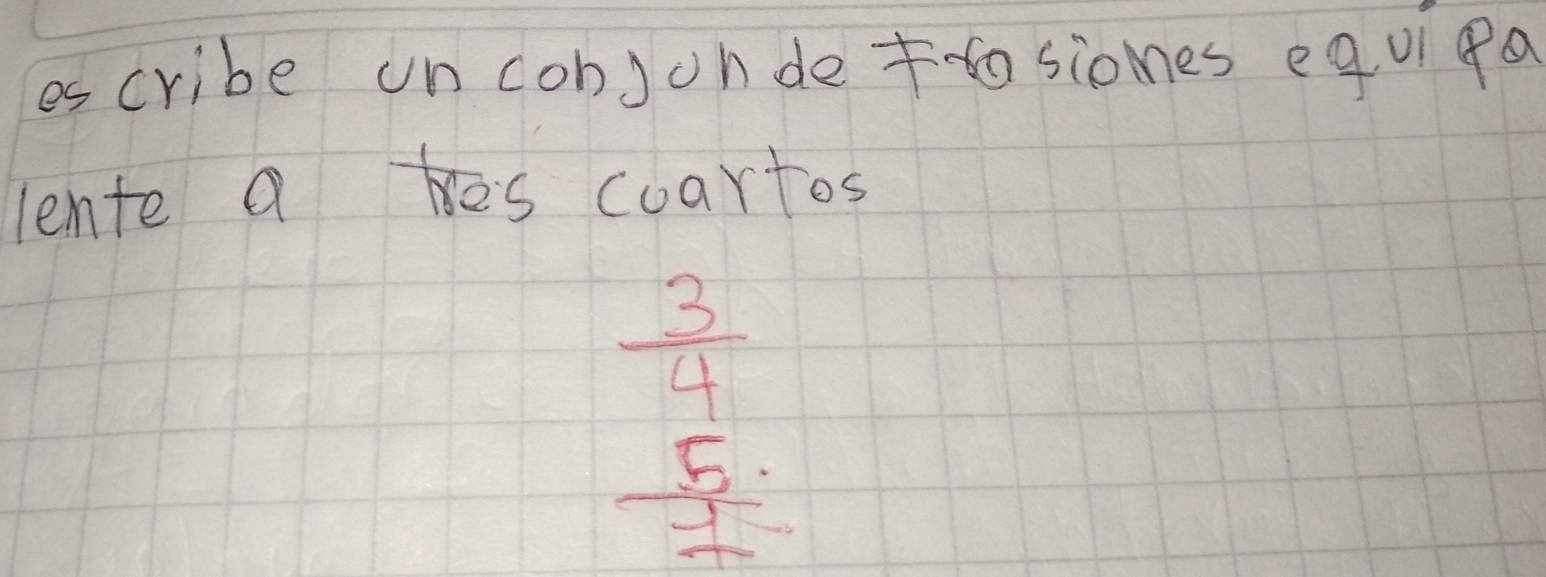 es cribe un conjun de frasiones equipa
lente a tres cuartos
3
4
5
7